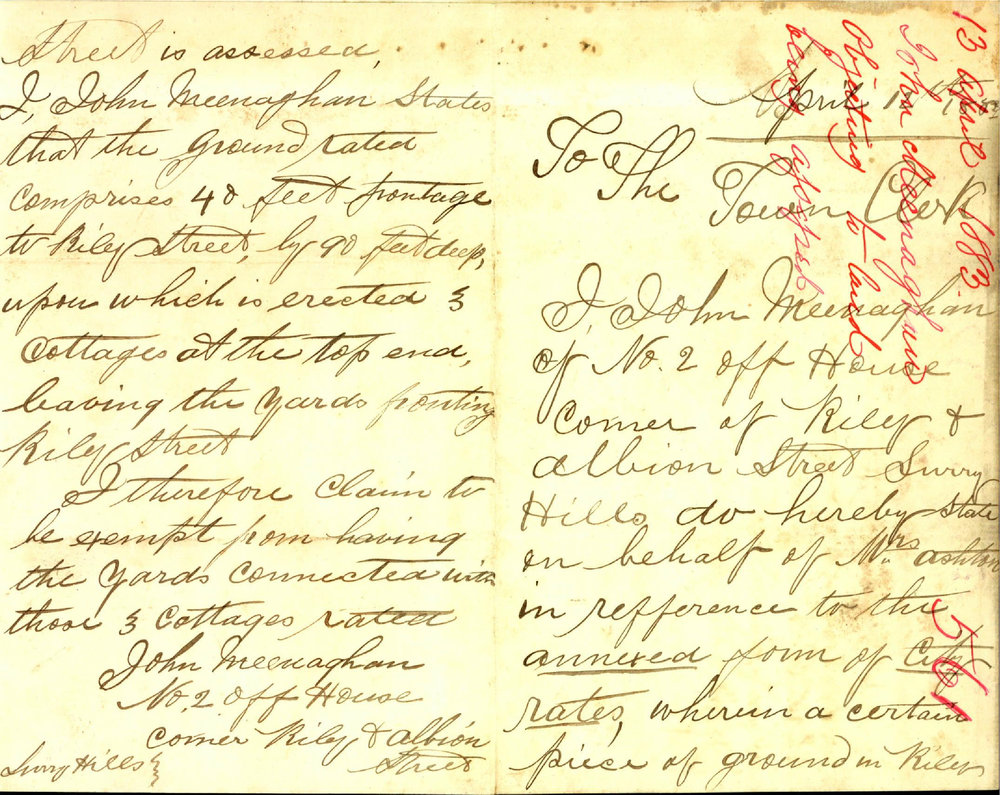 April
To The
Town Clerk
I, John Meenaghan
of No. 2 off House
corner of Riley &
Albion Street Surry
Hills do hereby state
on behalf of Mrs Ashton
in refference to the
annexed form of City
rates, wherein a certain
piece of ground in Riley
Street is assessed,
I, John Meenaghan States
that the ground rated
comprises 40 feet frontage
to Riley Street, by 90 feet deep,
upon which is erected 3
cottages at the top end,
leaving the yards fronting
Riley Street
I therefore claim to
be exempt from having
the yards connected with
those 3 cottages rated
John Meenaghan
No. 2 off House
corner Riley & Albion
Street
Surry Hills
13 April 1883
John Meenaghan
Objecting to land
being assessed
561